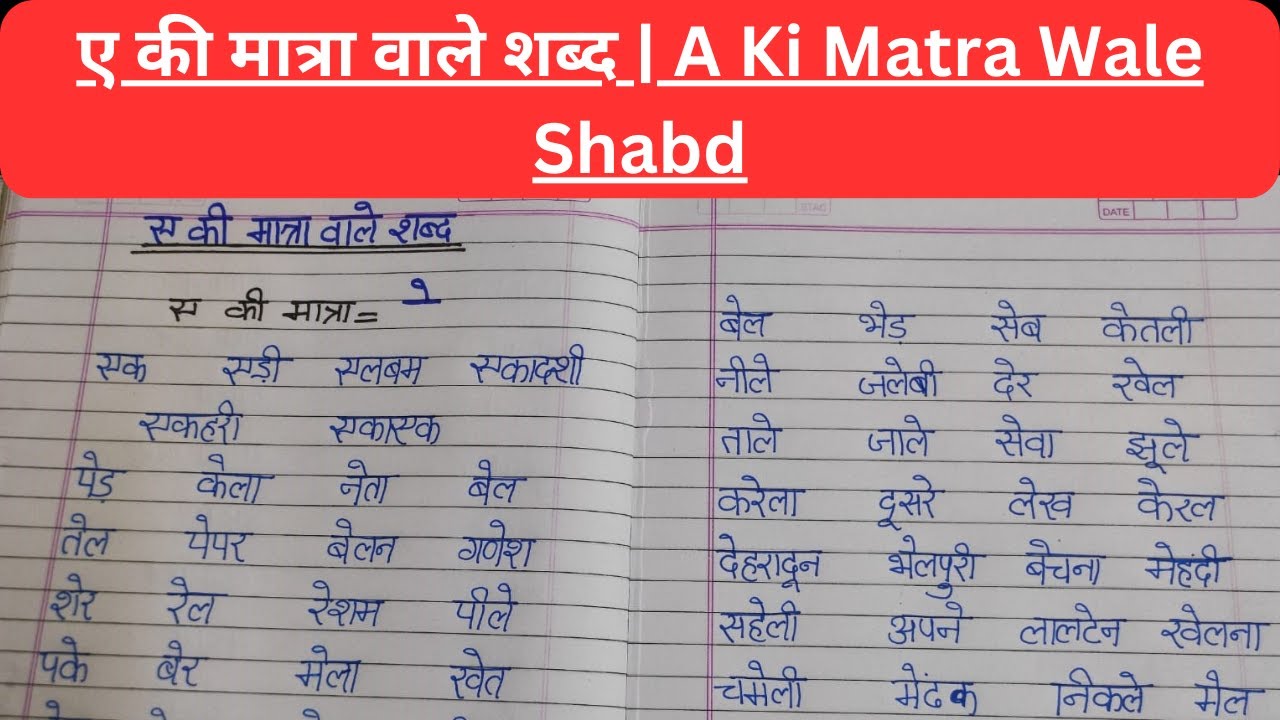 ए की मात्रा वाले शब्द | A Ki Matra Wale
Shabd
ए की मात्रा वाले शब्द
ए की मात्रा = े
एक एड़ी एलबम एकादशी
एकहरी एकाएक
पेड़ केला नेता बेल
तेल पेपर बेलन गणेश
शेर रेल रेशम पीले
पके बेर मेला खेत
DATE
बेल भेड़ सेब केतली
नीले जलेबी देर खेल
ताले जाले सेवा झूले
करेला दूसरे लेख केरल
देहरादून भेलपुरी बेचना मेहंदी
सहेली अपने लालटेन खेलना
चमेली मेंढक निकले मेल